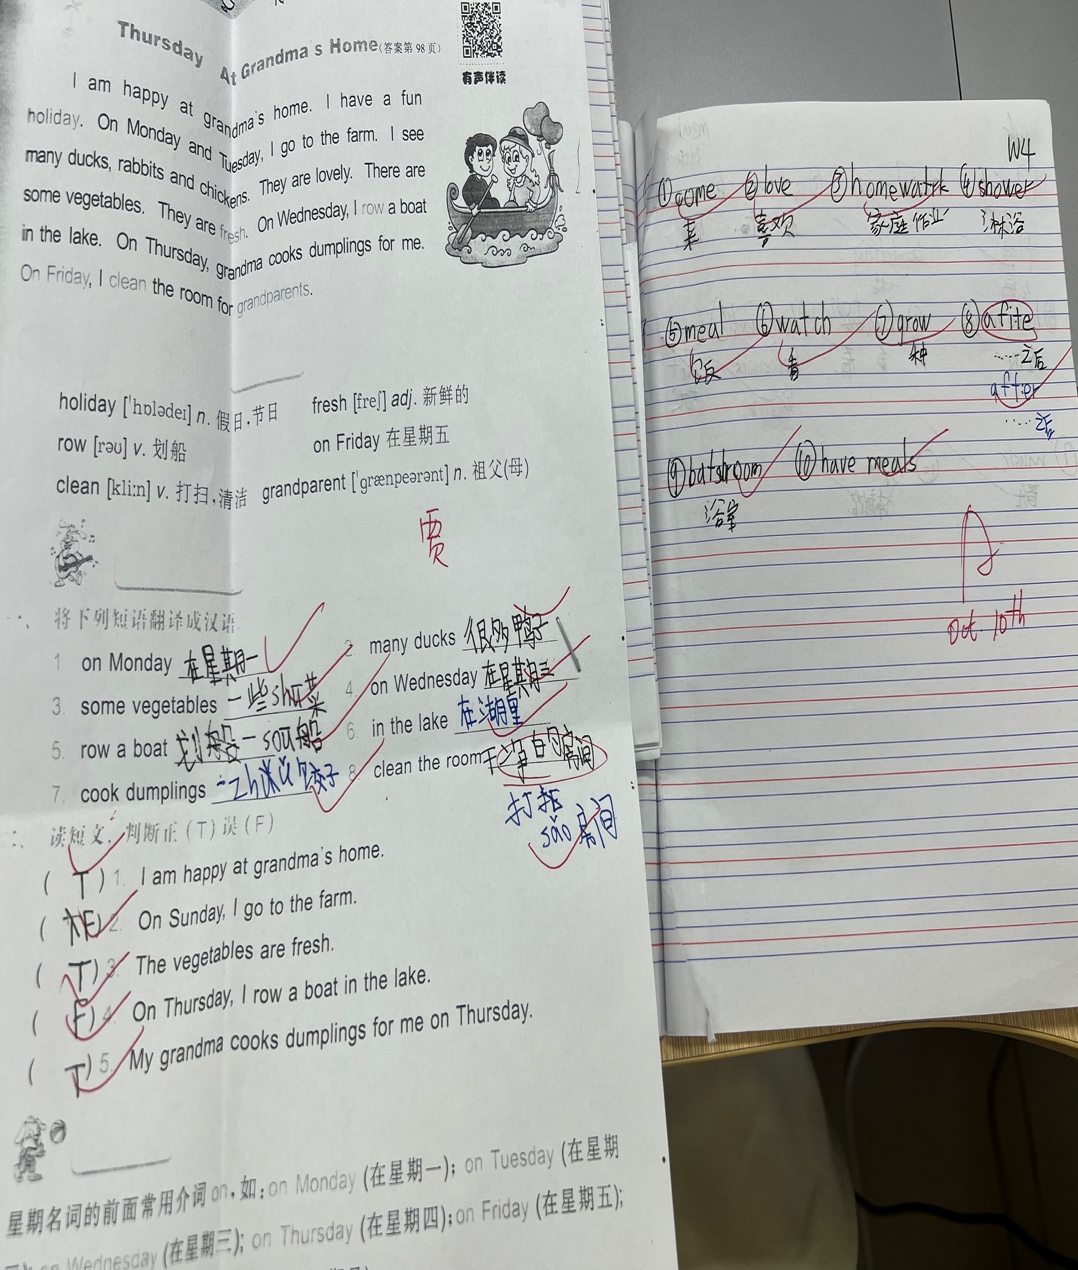 Thursday At Grandma's Home(答案第98页)
有声伴读
I am happy at grandma's home. I have a fun
holiday. On Monday and Tuesday, I go to the farm. I see
many ducks, rabbits and chickens. They are lovely. There are
some vegetables. They are fresh. On Wednesday, I row a boat
in the lake. On Thursday, grandma cooks dumplings for me.
On Friday, I clean the room for grandparents.
holiday ['hɒlədeɪ] n. 假日,节日 fresh [freʃ] adj. 新鲜的
row [rəʊ] v. 划船 on Friday 在星期五
clean [kliːn] v. 打扫,清洁 grandparent ['ɡrænpeərənt] n. 祖父(母)
贾
一、将下列短语翻译成汉语
1. on Monday 在星期一 2. many ducks 很多鸭子
3. some vegetables 一些shu菜 4. on Wednesday 在星期三
5. row a boat 划船一sou船 6. in the lake 在湖里
7. cook dumplings 8. clean the room 干净白勺房间
打扫 sǎo 房间
二、读短文,判断正(T)误(F)
( T ) 1. I am happy at grandma's home.
( F ) 2. On Sunday, I go to the farm.
( T ) 3. The vegetables are fresh.
( F ) 4. On Thursday, I row a boat in the lake.
( T ) 5. My grandma cooks dumplings for me on Thursday.
星期名词的前面常用介词on,如:on Monday (在星期一); on Tuesday (在星期
on Wednesday (在星期三); on Thursday (在星期四);on Friday (在星期五);
W4
①come ②love ③homewatrk ④shower
来 喜欢 家庭作业 淋浴
⑤meal ⑥watch ⑦grow ⑧afite
饭 看 种 ……之后
after
……之后
⑨batshroom ⑩have meals
浴室
A
Oct. 10th